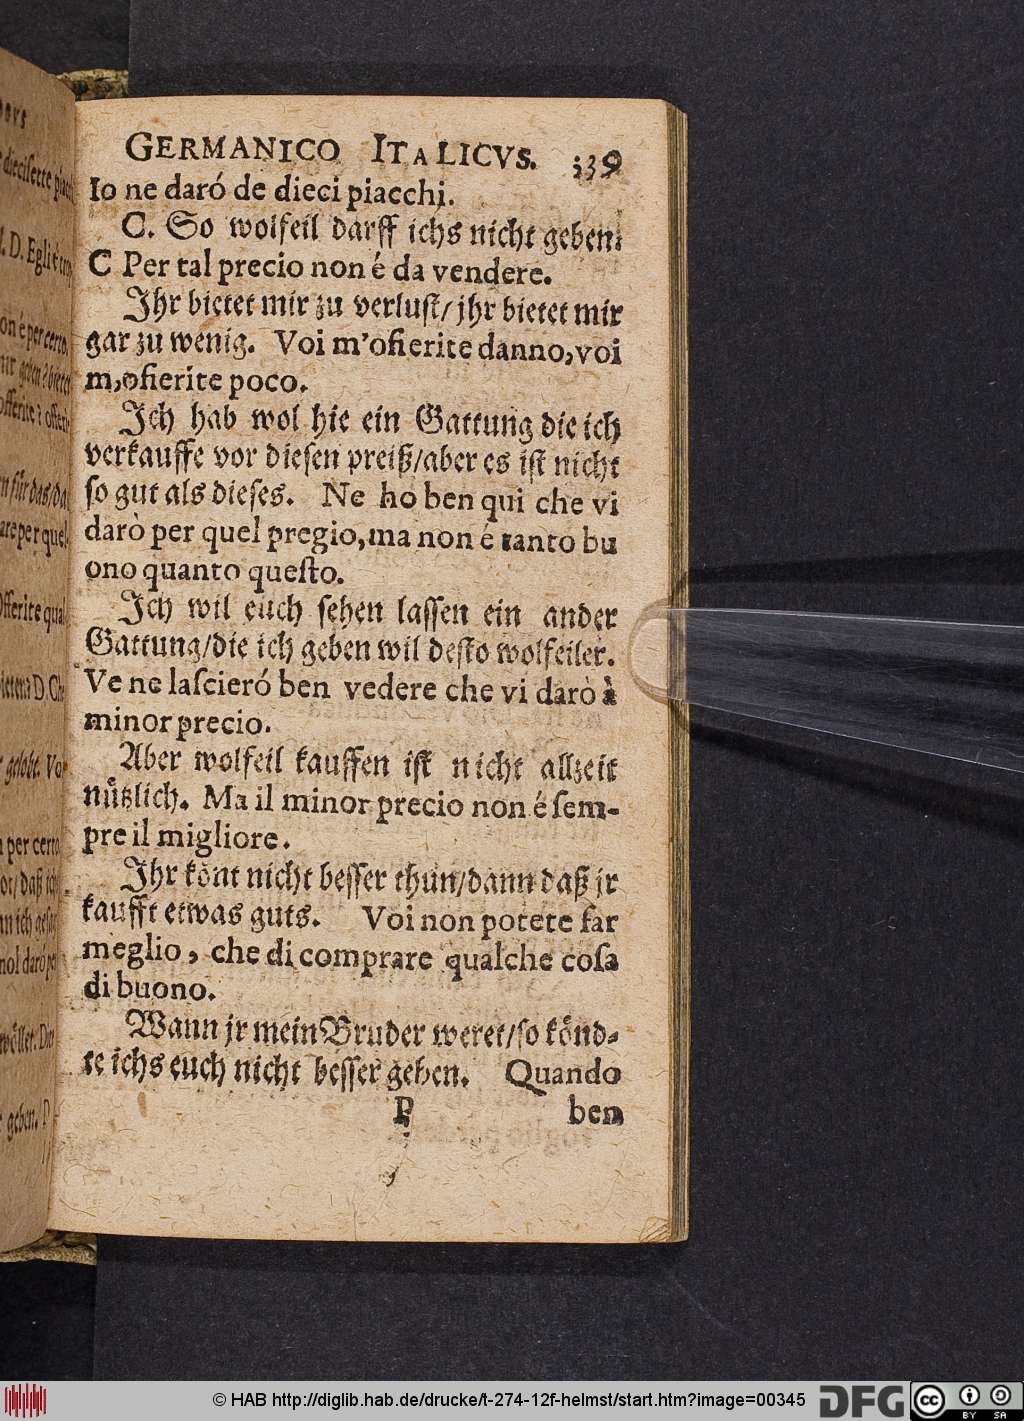 GERMANICO ITALICVS. 339
Io ne daró de dieci piacchi.
C. So wolfeil darff ichs nicht geben.
C Per tal precio non é da vendere.
Ihr bietet mir zu verlust/ jhr bietet mir
gar zu wenig. Voi m'ofierite danno, voi
m,ofierite poco.
Ich hab wol hie ein Gattung die ich
verkauffe vor diesen preiß/aber es ist nicht
so gut als dieses. Ne ho ben qui che vi
darò per quel pregio, ma non é tanto bu
ono quanto questo.
Ich wil euch sehen lassen ein ander
Gattung/die ich geben wil desto wolfeiler.
Ve ne lascieró ben vedere che vi darò à
minor precio.
Aber wolfeil kauffen ist nicht allzeit
nützlich. Ma il minor precio non é sem-
pre il migliore.
Ihr könt nicht besser thun/dann daß jr
kaufft etwas guts. Voi non potete far
meglio, che di comprare qualche cosa
di buono.
Wann jr mein Bruder weret/so könd-
te ichs euch nicht besser geben. Quando
P ben
diecisette
D. Egli é
on é per certo,
geben? bietet
offerite?
für das/da
are per quel
Offerite qual
D. Che
gelobt. Vo
per certo
daß ich
nol daró pe
wöllet.
geben. P
© HAB http://diglib.hab.de/drucke/t-274-12f-helmst/start.htm?image=00345
DFG
cc BY SA